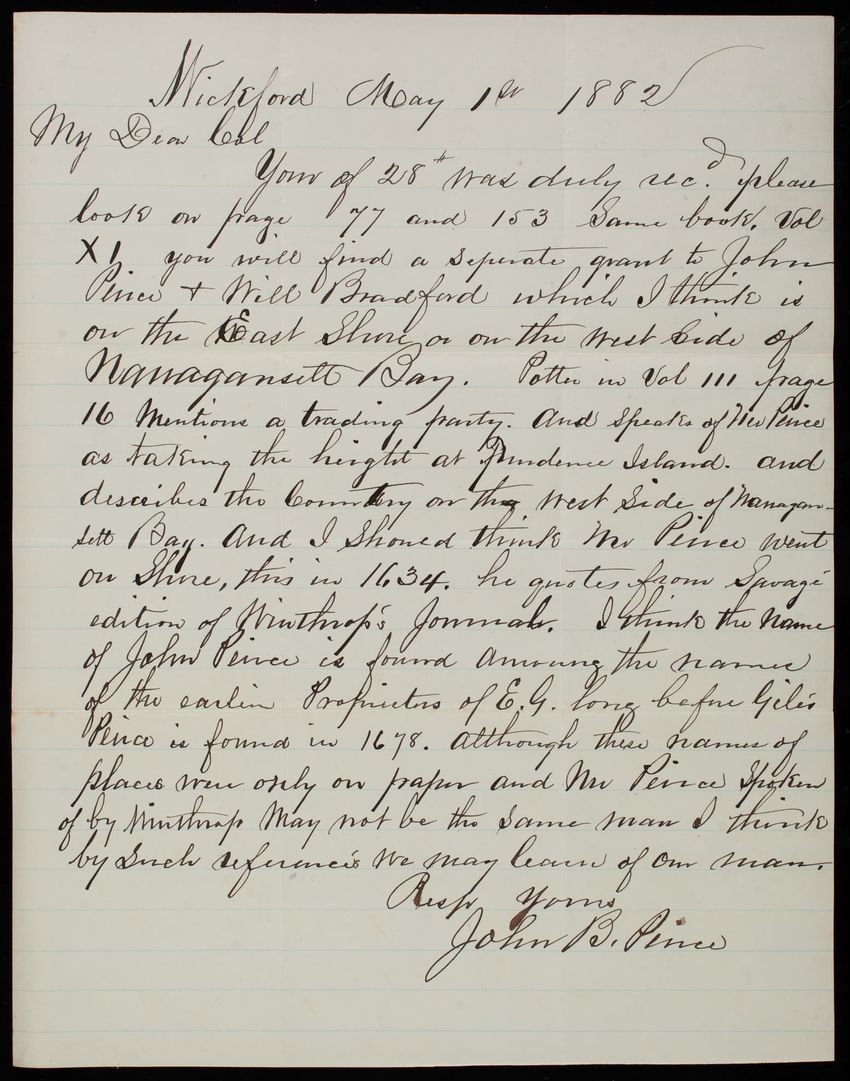 Wickford May 1st 1882
My Dear Col
Your of 28th was duly rec.d please
look on page 77 and 153 Same book. Vol
XI you will find a seperate grant to John
Peirce + Will Bradford which I think is
on the East Shore or on the West Side of
Narragansett Bay. Potter in Vol III page
16 Mentions a trading party. And Speaks of Mr Peirce
as taking the height at Prudence Island. and
describes the Country on the west Side of Narragan-
sett Bay. And I Should think Mr Peirce went
on Shore, this in 1634. he quotes from Savage'
edition of Winthrop's Journal. I think the Name
of John Peirce is found amoung the names
of the earlier Proprietors of E.G. long before Giles
Peirce is found in 1678. Although these names of
places were only on paper and Mr Peirce Spoken
of by Winthrop May not be the same man I think
by Such reference's we may learn of our man.
Resp Yours
John B. Peirce